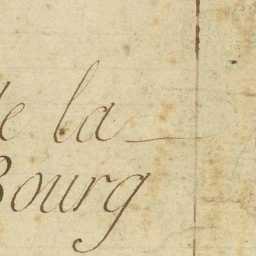 de la
Bourg